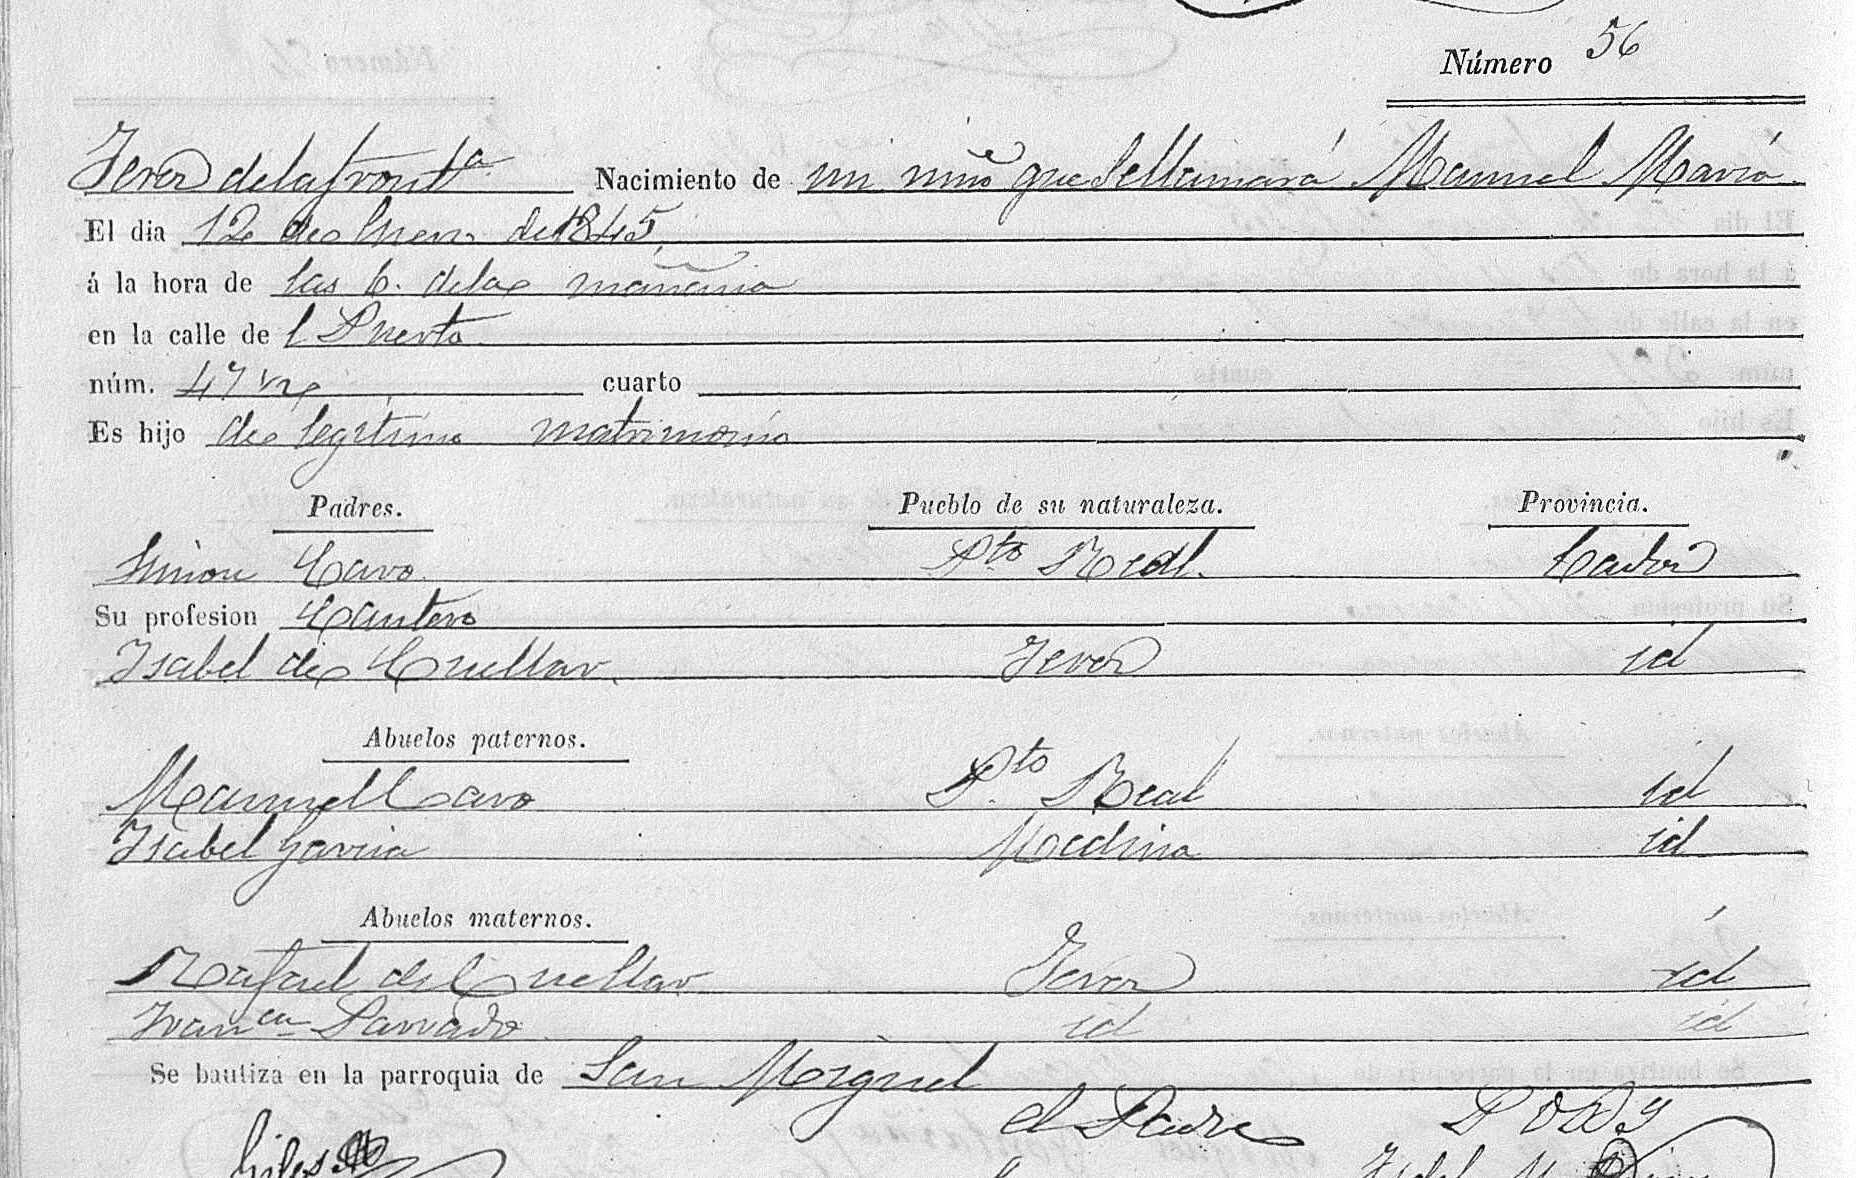 Número 56
Jerez de la front.ª Nacimiento de un niño que se llamará Manuel María
El dia 12 de Enero de 1845
á la hora de las 6. de la mañana
en la calle de l Puerto
núm. 47 cuarto
Es hijo de legitimo matrimonio
Padres. Pueblo de su naturaleza. Provincia.
Simon Caro Pto Real. Cadiz
Su profesion Cantero
Isabel de Cuellar Jerez id
Abuelos paternos.
Manuel Caro Pto Real id
Isabel Garcia Medina id
Abuelos maternos.
Rafael de Cuellar Jerez id
Franca Parrado id id
Se bautiza en la parroquia de San Miguel
el Padre P O D